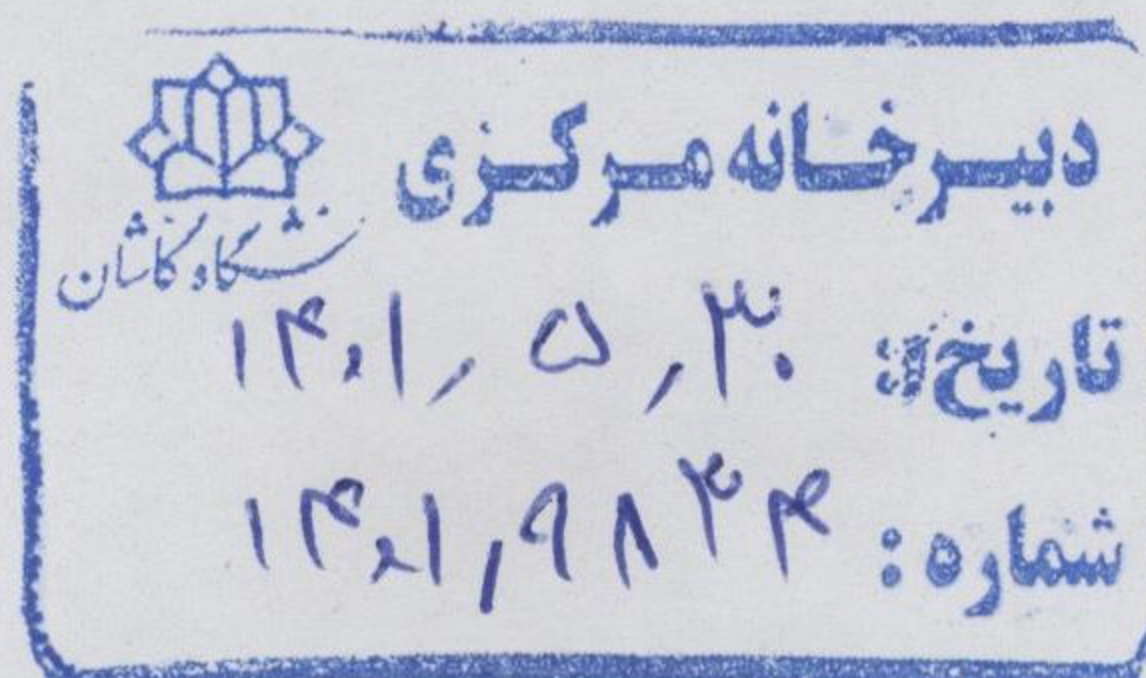 دبیرخانه مرکزی
دانشگاه کاشان
تاریخ: ۱۴۰۱/۵/۳۰
شماره: ۱۴۰۱/۹۸۳۴